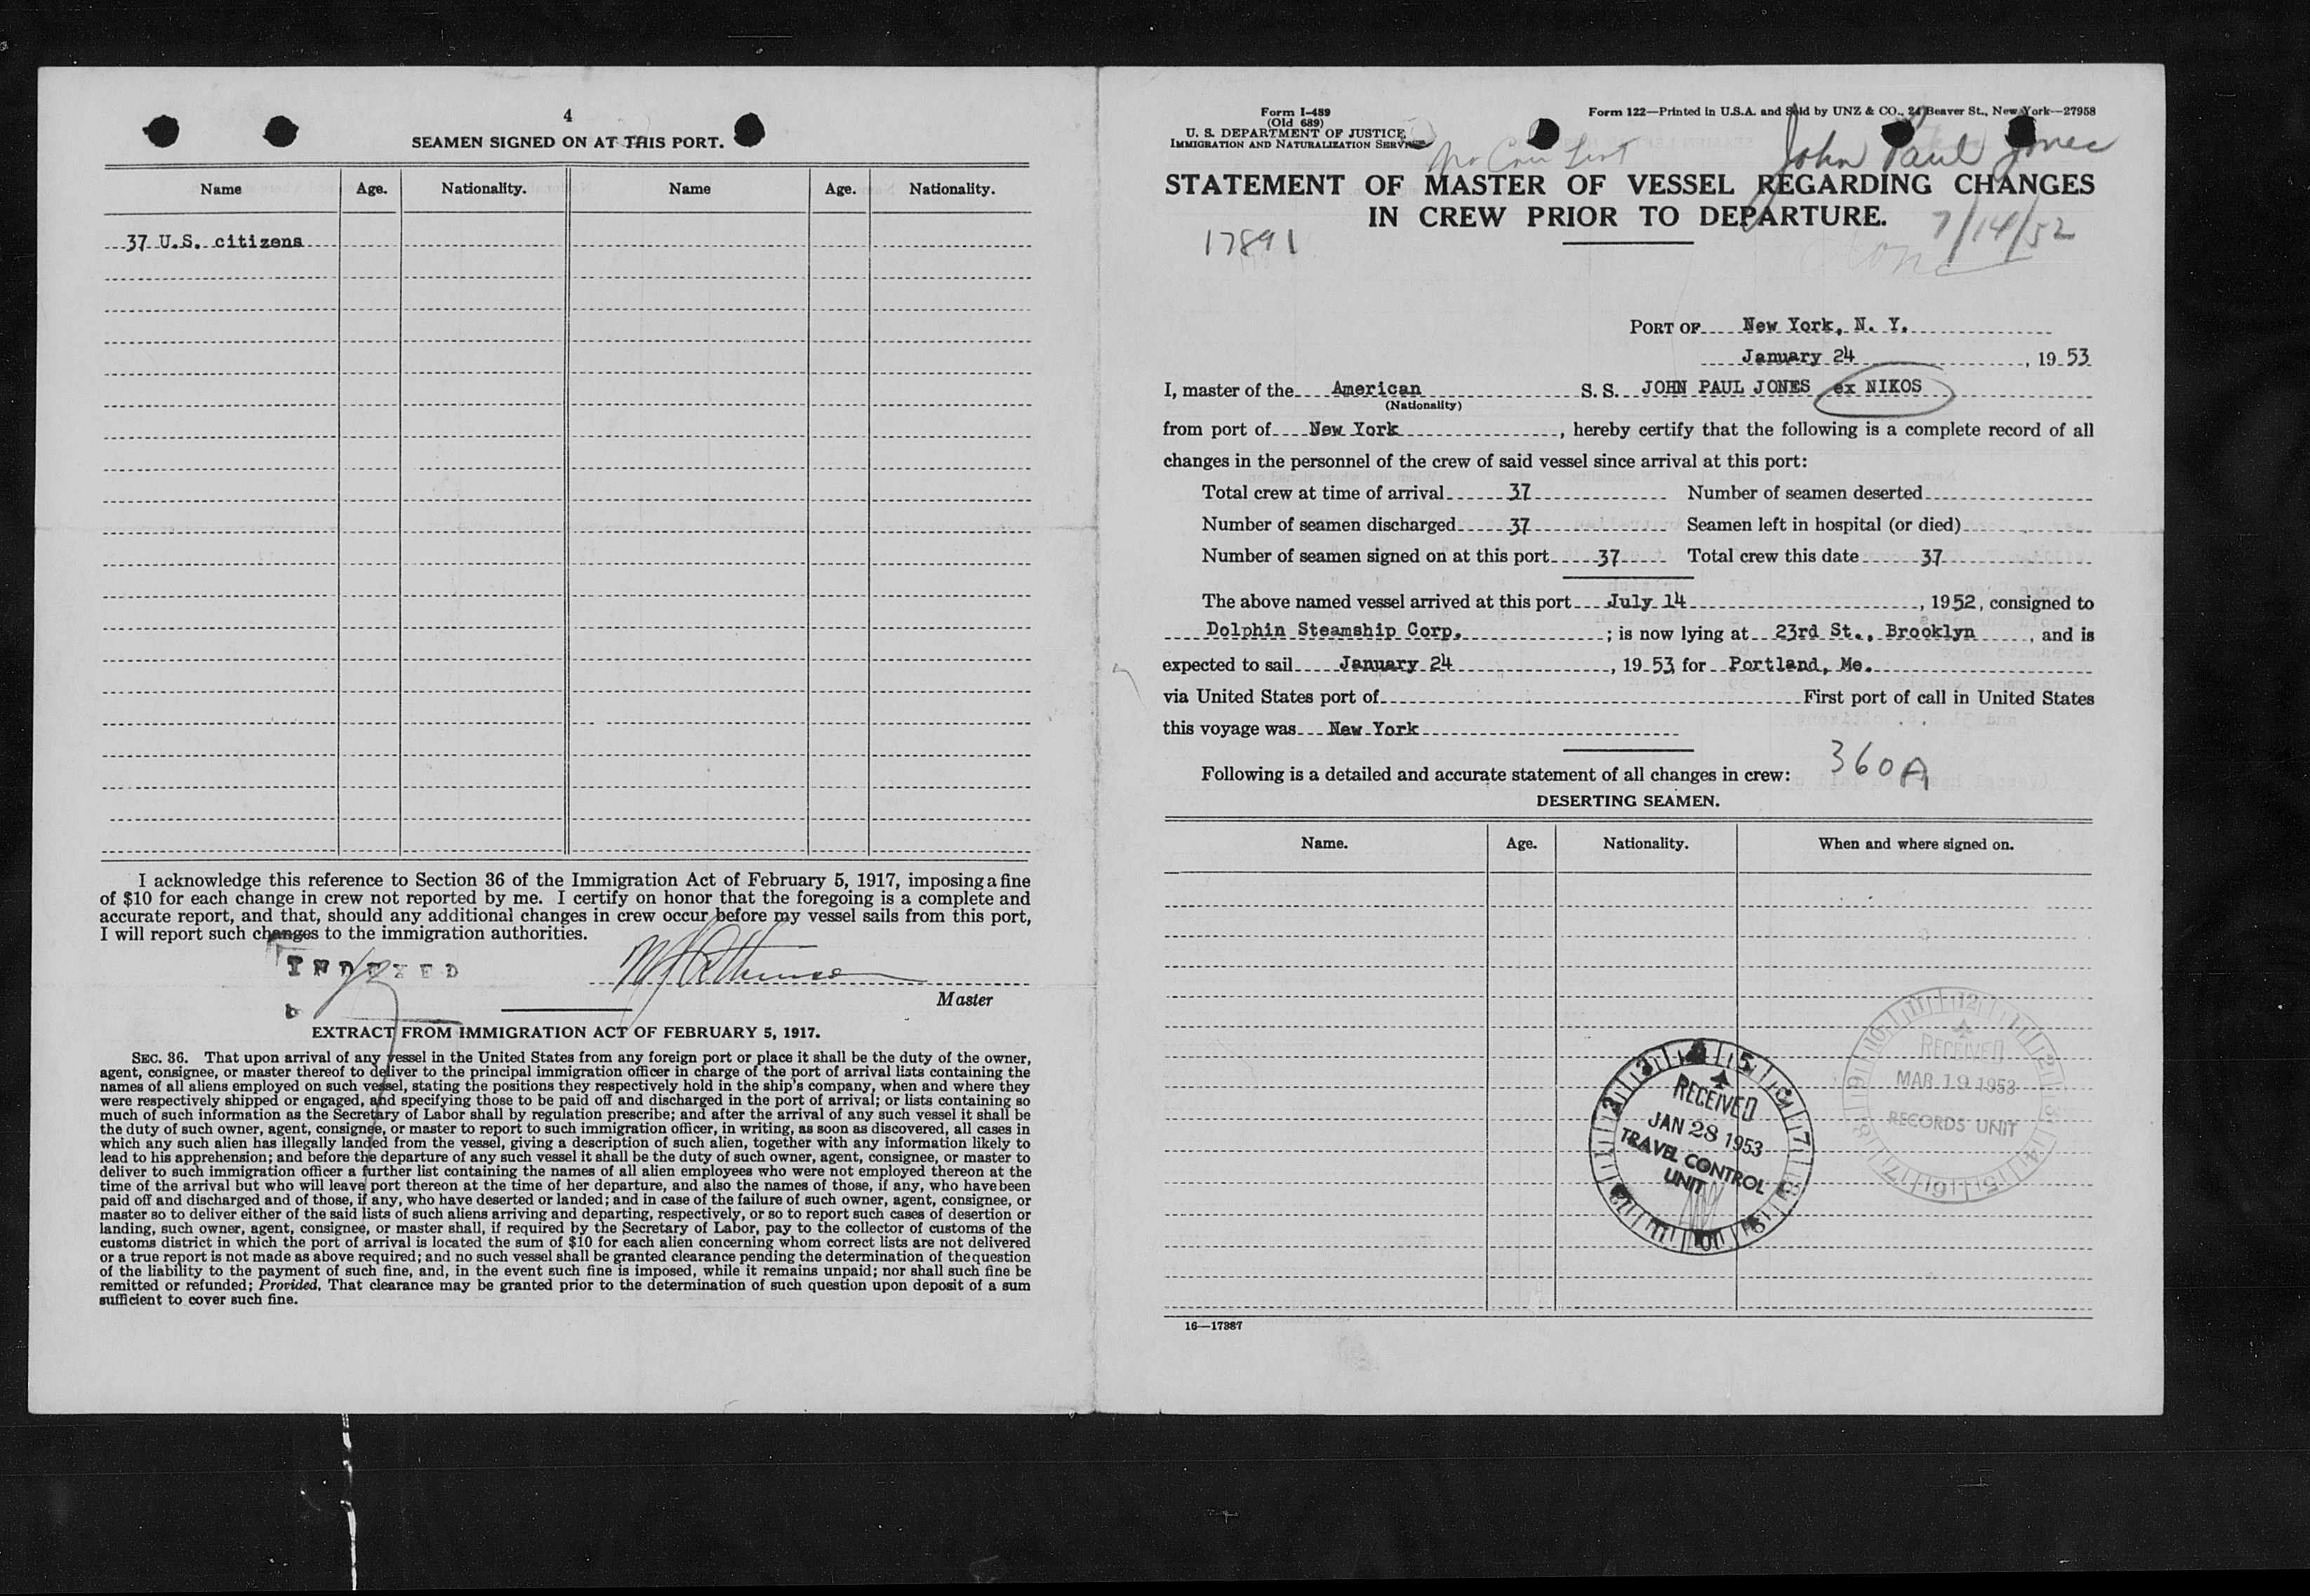 4
SEAMEN SIGNED ON AT THIS PORT.
Name Age. Nationality. Name Age. Nationality.
37 U.S. citizens
I acknowledge this reference to Section 36 of the Immigration Act of February 5, 1917, imposing a fine
of $10 for each change in crew not reported by me. I certify on honor that the foregoing is a complete and
accurate report, and that, should any additional changes in crew occur before my vessel sails from this port,
I will report such changes to the immigration authorities.
INDEXED
Master
EXTRACT FROM IMMIGRATION ACT OF FEBRUARY 5, 1917.
SEC. 36. That upon arrival of any vessel in the United States from any foreign port or place it shall be the duty of the owner,
agent, consignee, or master thereof to deliver to the principal immigration officer in charge of the port of arrival lists containing the
names of all aliens employed on such vessel, stating the positions they respectively hold in the ship's company, when and where they
were respectively shipped or engaged, and specifying those to be paid off and discharged in the port of arrival; or lists containing so
much of such information as the Secretary of Labor shall by regulation prescribe; and after the arrival of any such vessel it shall be
the duty of such owner, agent, consignee, or master to report to such immigration officer, in writing, as soon as discovered, all cases in
which any such alien has illegally landed from the vessel, giving a description of such alien, together with any information likely to
lead to his apprehension; and before the departure of any such vessel it shall be the duty of such owner, agent, consignee, or master to
deliver to such immigration officer a further list containing the names of all alien employees who were not employed thereon at the
time of the arrival but who will leave port thereon at the time of her departure, and also the names of those, if any, who have been
paid off and discharged and of those, if any, who have deserted or landed; and in case of the failure of such owner, agent, consignee, or
master so to deliver either of the said lists of such aliens arriving and departing, respectively, or so to report such cases of desertion or
landing, such owner, agent, consignee, or master shall, if required by the Secretary of Labor, pay to the collector of customs of the
customs district in which the port of arrival is located the sum of $10 for each alien concerning whom correct lists are not delivered
or a true report is not made as above required; and no such vessel shall be granted clearance pending the determination of the question
of the liability to the payment of such fine, and, in the event such fine is imposed, while it remains unpaid; nor shall such fine be
remitted or refunded; Provided, That clearance may be granted prior to the determination of such question upon deposit of a sum
sufficient to cover such fine.
Form I-489
(Old 689)
U. S. DEPARTMENT OF JUSTICE
IMMIGRATION AND NATURALIZATION SERVICE
Form 122—Printed in U.S.A. and Sold by UNZ & CO., 24 Beaver St., New York—27958
No Crew List
John Paul Jones
STATEMENT OF MASTER OF VESSEL REGARDING CHANGES
IN CREW PRIOR TO DEPARTURE.
7/14/52
17891
PORT OF New York, N. Y.
January 24, 1953
I, master of the American S. S. JOHN PAUL JONES ex NIKOS
(Nationality)
from port of New York, hereby certify that the following is a complete record of all
changes in the personnel of the crew of said vessel since arrival at this port:
Total crew at time of arrival 37 Number of seamen deserted
Number of seamen discharged 37 Seamen left in hospital (or died)
Number of seamen signed on at this port 37 Total crew this date 37
The above named vessel arrived at this port July 14, 1952, consigned to
Dolphin Steamship Corp.; is now lying at 23rd St., Brooklyn, and is
expected to sail January 24, 1953 for Portland, Me.
via United States port of First port of call in United States
this voyage was New York
Following is a detailed and accurate statement of all changes in crew:
360A
DESERTING SEAMEN.
Name. Age. Nationality. When and where signed on.
RECEIVED
JAN 28 1953
TRAVEL CONTROL
UNIT
RECEIVED
MAR 19 1953
RECORDS UNIT
16—17387